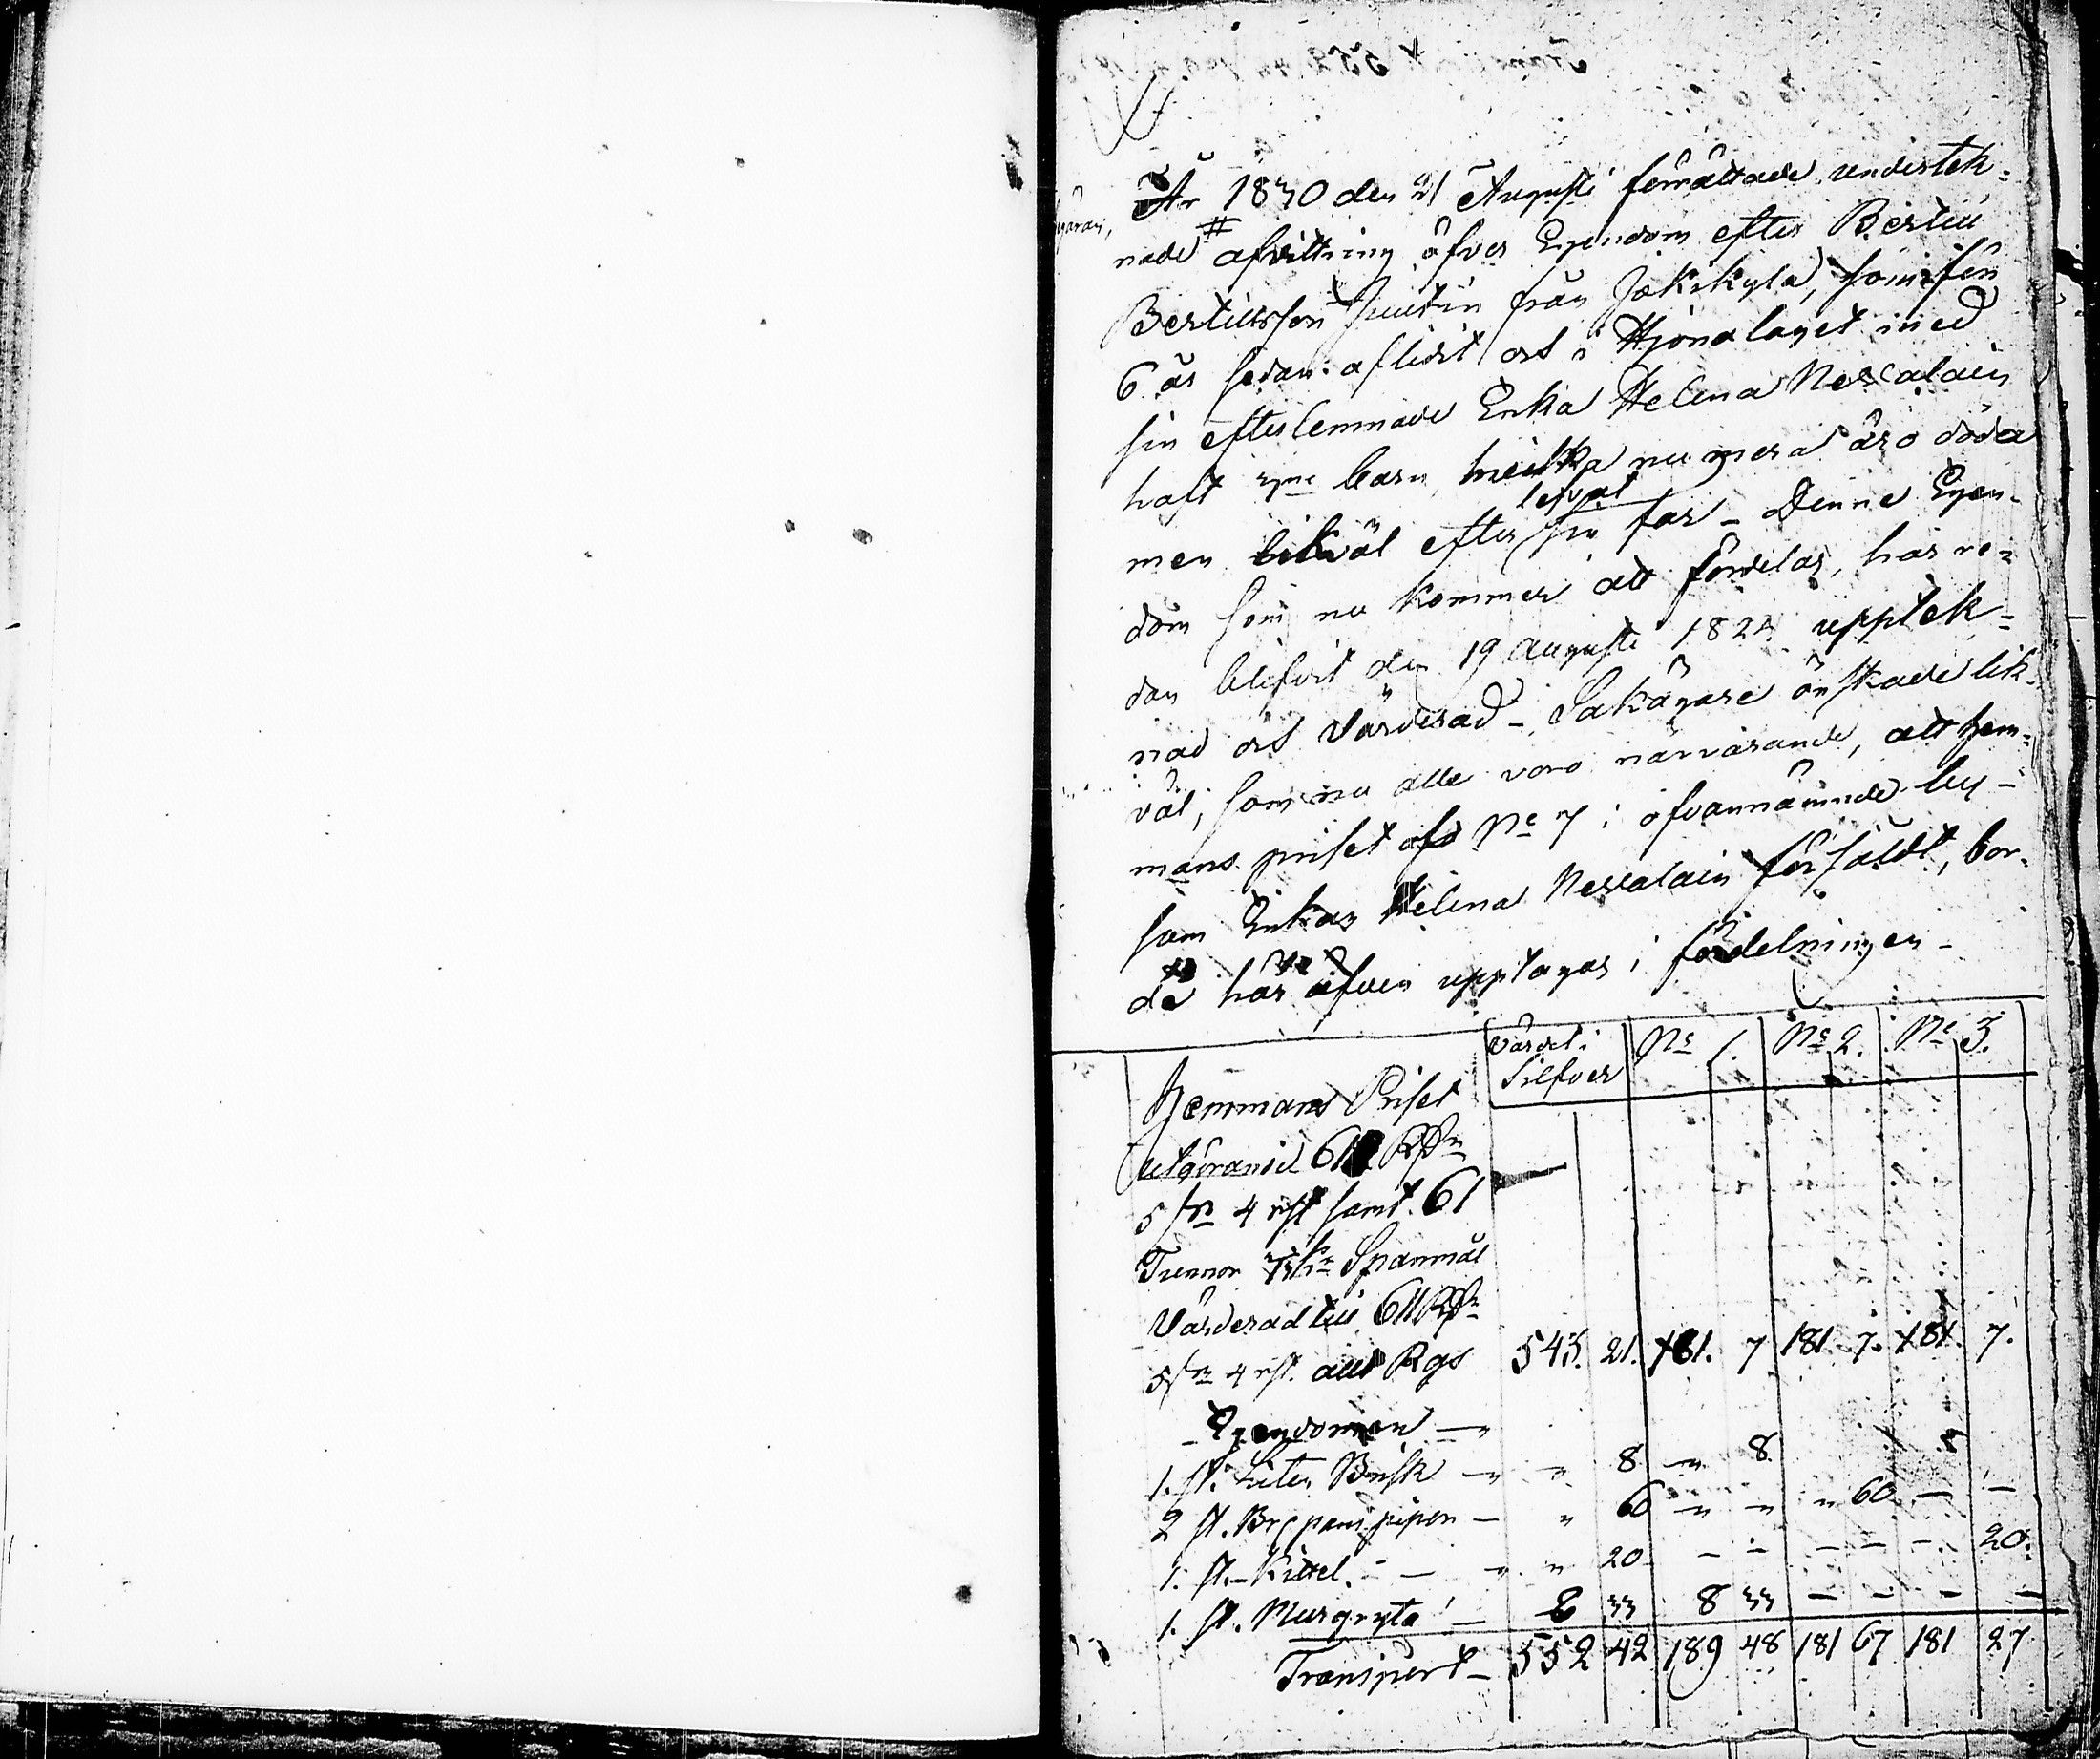 År 1830 den 21 Augusti förrättade undertek-
nade # afvittring öfver Egendom efter Bertill
Bertillsson från Jokikylä, som för
6 år sedan aflidit och i Hjonalaget med
sin efterlemnade Enka Helena
haft barn hvilka numera äro döda
men likväl lefvat efter sin far - Denne Egen-
dom som nu kommer att fördelas, har re-
dan blifvit den 19 Augusti 1824 upptek-
nad och Värderad - Sakägare önskade lik-
väl, som nu alle voro närvarande, att hem-
mans priset af No 7 i ofvannämnde by -
som Enkan Helena försåldt, bor-
de här äfven upptagas i fördelningen -
Värdet i Silfver No 1. No 2. No 3.
Hemmans Priset
utgörande 611
5 4 samt 61
Tunnor Spanmål
Värderad till 611
5 4 allt Rgs 543. 21. 181. 7 181 7. 181. 7.
Egendomen
1. st. Liten Busk " " 8 " 8
2 st. pipor - " 60 " " " 60 - -
1. st. Kittel - - " " 20 - - - - - 20.
1. st. Murgryta - 8 33 8 33 - - - -
Transport - 552 42 189 48 181 67 181 27